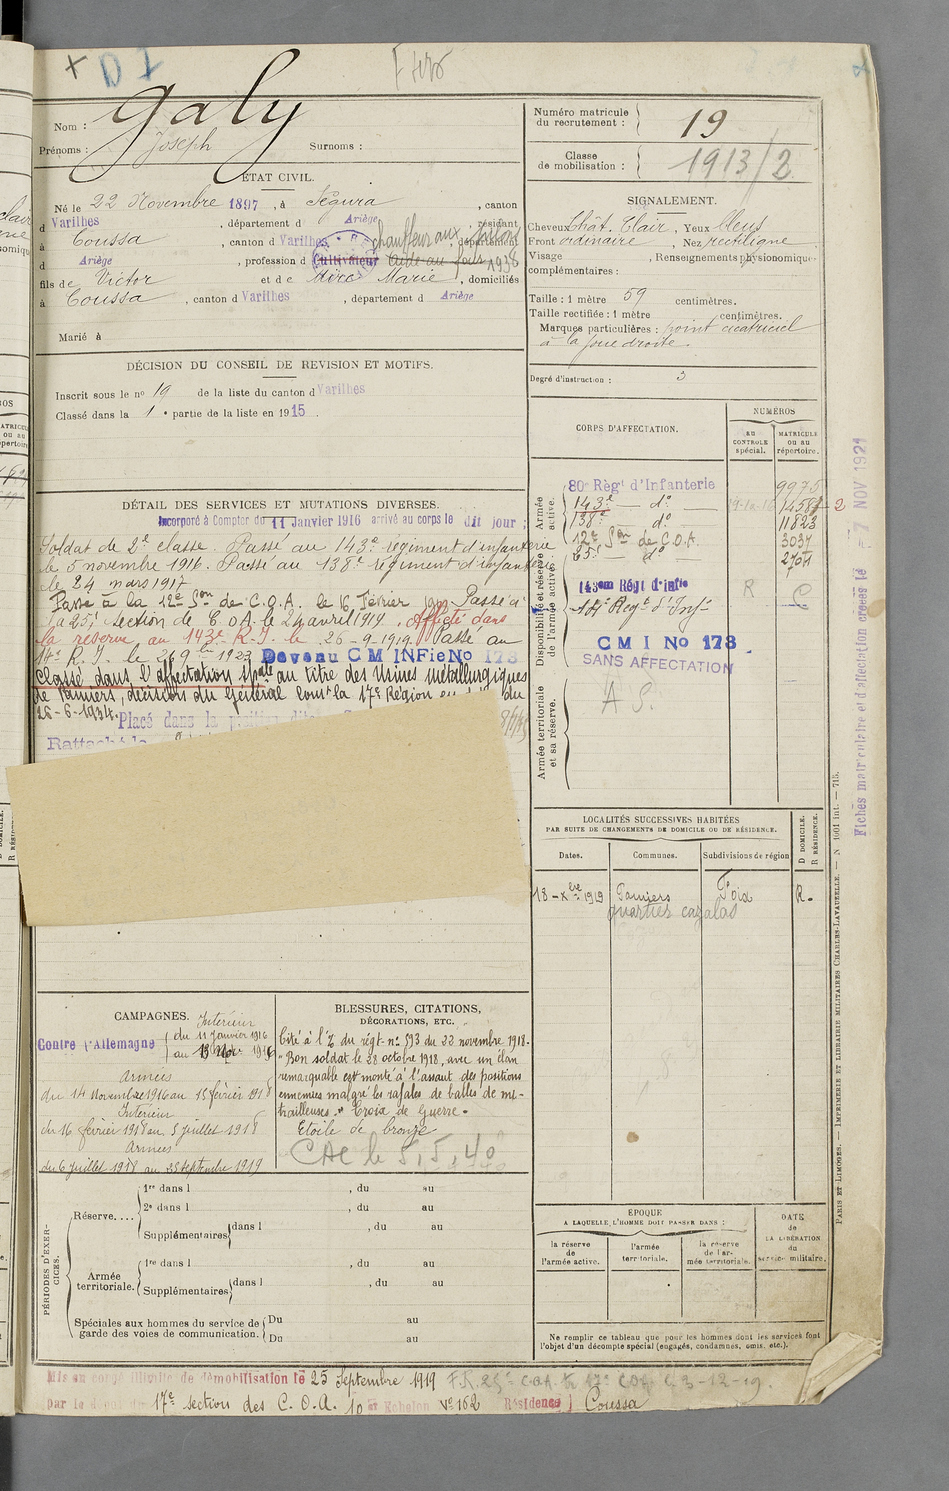 × D I
Galy
Nom :
Prénoms : Joseph Surnoms :
ÉTAT CIVIL.
Né le 22 Novembre 1897, à Ségura, canton
d Varilhes, département d Ariège, résidant
à Coussa, canton d Varilhes, département
d Ariège, profession d Cultivateur Aide au
chauffeur aux pilons
1938
fils de Victor et de Marie, domiciliés
à Coussa, canton d Varilhes, département d Ariège
Marié à
DÉCISION DU CONSEIL DE REVISION ET MOTIFS.
Inscrit sous le no 19 de la liste du canton d Varilhes
Classé dans la 1e partie de la liste en 1915.
DÉTAIL DES SERVICES ET MUTATIONS DIVERSES.
Incorporé à Compter du 11 Janvier 1916 arrivé au corps le dit jour ;
Soldat de 2e classe. Passé au 143e régiment d'infanterie
le 5 novembre 1916. Passé au 138e régiment d'infanterie
le 24 mars 1917
Passé à la 12e Son de C.O.A. le 16 Février Passé à
la 25e section de C.O.A. le 24 avril 1919. Affecté dans
la réserve au 143e R.I. le 26-9-1919. Passé au
14e R.I. le 1923 Devenu C M INFie No 173
Classé dans l'affectation Spale au titre des Usines métallurgiques
de Pamiers, décision du Général Comt la 17e Région du
26-6-1934. Placé dans la position dite
Rattaché
CAMPAGNES.
Contre l'Allemagne
Intérieur
du 11 Janvier 1916
au 13 1916
Armées
du 14 Novembre 1916 au 15 février 1918
Intérieur
du 16 février 1918 au 5 juillet 1918
Armées
du 6 juillet 1918 au 25 septembre 1919
BLESSURES, CITATIONS,
DÉCORATIONS, ETC.
Cité à l'O. du régt no 593 du 22 novembre 1918.
"Bon soldat le 28 octobre 1918, avec un élan
remarquable est monté à l'assaut des positions
ennemies malgré les rafales de balles de mi-
trailleuses." Croix de Guerre.
Etoile de bronze
CAC le 5, 5, 40
PÉRIODES D'EXER-
CICES.
Réserve....
1re dans l , du au
2e dans l , du au
Supplémentaires dans l , du au
Armée
territoriale.
1re dans l , du au
Supplémentaires dans l , du au
Spéciales aux hommes du service de
garde des voies de communication.
Du au
Du au
Mis en congé illimité de démobilisation le 25 Septembre 1919
par le dépôt de 17e section des C.O.A. 10 e Echelon No 162 Résidence Coussa
Numéro matricule
du recrutement : 19
Classe
de mobilisation : 1913/2
SIGNALEMENT.
Cheveux Chât. Clair, Yeux bleus
Front ordinaire, Nez rectiligne
Visage , Renseignements physionomique-
complémentaires :
Taille : 1 mètre 59 centimètres.
Taille rectifiée : 1 mètre centimètres.
Marques particulières : point cicatriciel
à la joue droite.
Degré d'instruction : 3
CORPS D'AFFECTATION.
NUMÉROS
AU
CONTROLE
spécial.
MATRICULE
ou au
répertoire.
Armée
active.
80e Régt d'Infanterie 9975
143e do 14584 2
138e do 11823
12e Son de C.O.A. 3037
25e do 2704
Disponibilité et réserve
de l'armée active.
143em Régt d'Infie R
14e Régt d'Inf.
C M I No 173
SANS AFFECTATION
Armée territoriale
et sa réserve.
A S.
LOCALITÉS SUCCESSIVES HABITÉES
PAR SUITE DE CHANGEMENTS DE DOMICILE OU DE RÉSIDENCE.
Dates. Communes. Subdivisions de région
D DOMICILE.
R RÉSIDENCE.
18-Xbre 1919 Pamiers Foix R.
quartier cazalas
ÉPOQUE
A LAQUELLE L'HOMME DOIT PASSER DANS :
DATE
de
LA LIBÉRATION
du
service militaire.
la réserve
de
l'armée active.
l'armée
territoriale.
la réserve
de l'ar-
mée territoriale.
Ne remplir ce tableau que pour les hommes dont les services font
l'objet d'un décompte spécial (engagés, condamnés, omis, etc.).
Fiches matriculaire et d'affectation créées le 7 NOV 1921
PARIS ET LIMOGES. — IMPRIMERIE ET LIBRAIRIE MILITAIRES CHARLES-LAVAUZELLE. — N 1601 int. — 715.